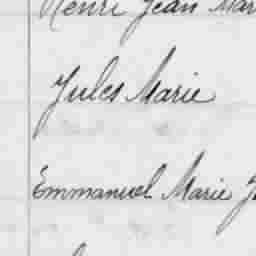 Henri Jean Mar
Jules Marie
Emmanuel Marie J